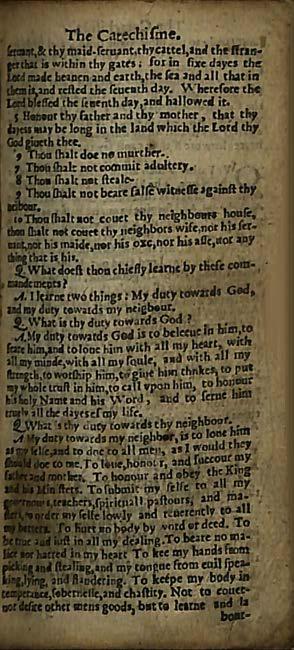 The Catechisme.
seruant,& thy maid-seruant,thy cattel,and the stran-
ger that is within thy gates: for in sixe dayes the
Lord made heauen and earth,the sea and all that in
them is,and rested the seuenth day. Wherefore the
Lord blessed the seuenth day,and hallowed it.
5 Honour thy father and thy mother, that thy
dayes may be long in the land which the Lord thy
God giueth thee.
Thou shalt doe no murther.
7 Thou shalt not commit adultery.
8 Thou shalt not steale.
9 Thou shalt not beare false witnesse against thy
neibour.
10 Thou shalt not couet thy neighbours house,
thou shalt not couet thy neighbors wife,nor his ser-
uant,nor his maide,nor his oxe,nor his asse,nor any
thing that is his.
Q.What doest thou chiefly learne by these com-
mandements?
A. I learne two things: My duty towards God,
and my duty towards my neigbour.
Q.What is thy duty towards God?
A.My duty towards God is to beleeue in him,to
feare him,and to loue him with all my heart, with
all my minde,with all my soule, and with all my
strength,to worship him,to giue him thankes, to put
my whole trust in him,to call vpon him, to honour
his holy Name and his Word, and to serue him
truely all the dayes of my life.
Q.What is thy duty towards thy neighbour.
A My duty towards my neighbor, is to loue him
as my selfe,and to doe to all men, as I would they
should doe to me. To loue,honour, and succour my
father and mother. To honour and obey the King
and his Ministers. To submit my selfe to all my
gouernours,teachers,spirituall pastours, and ma-
sters,to order my selfe lowly and reuerently to all
my betters. To hurt no body by word or deed. To
be true and iust in all my dealing.To beare no ma-
lice nor hatred in my heart To kee my hands from
picking and stealing,and my tongue from euill spea-
king,lying, and slandering. To keepe my body in
temperance,sobernesse,and chastity. Not to couet
nor desire other mens goods, but to learne and la
bour-